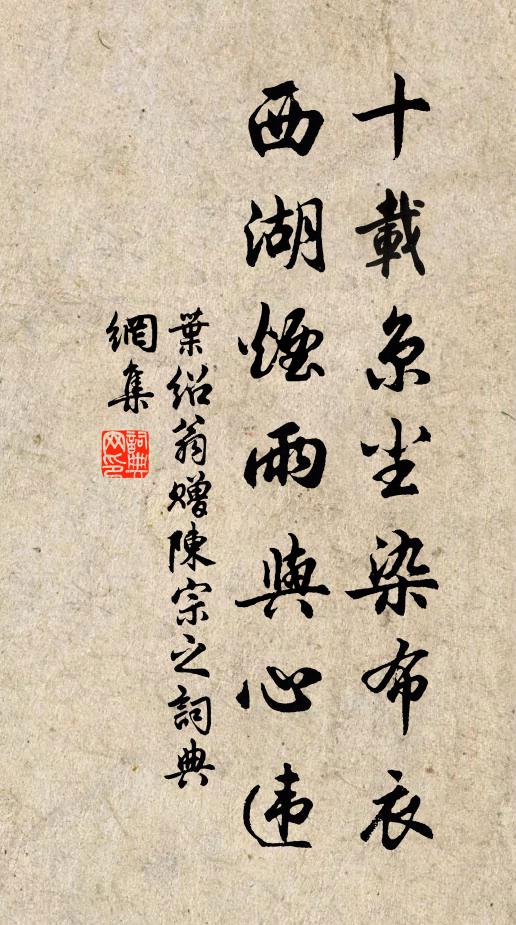 十載京尘染布衣
西湖煙雨與心违
葉紹翁贈陳宗之詞典
網集
詞典网印